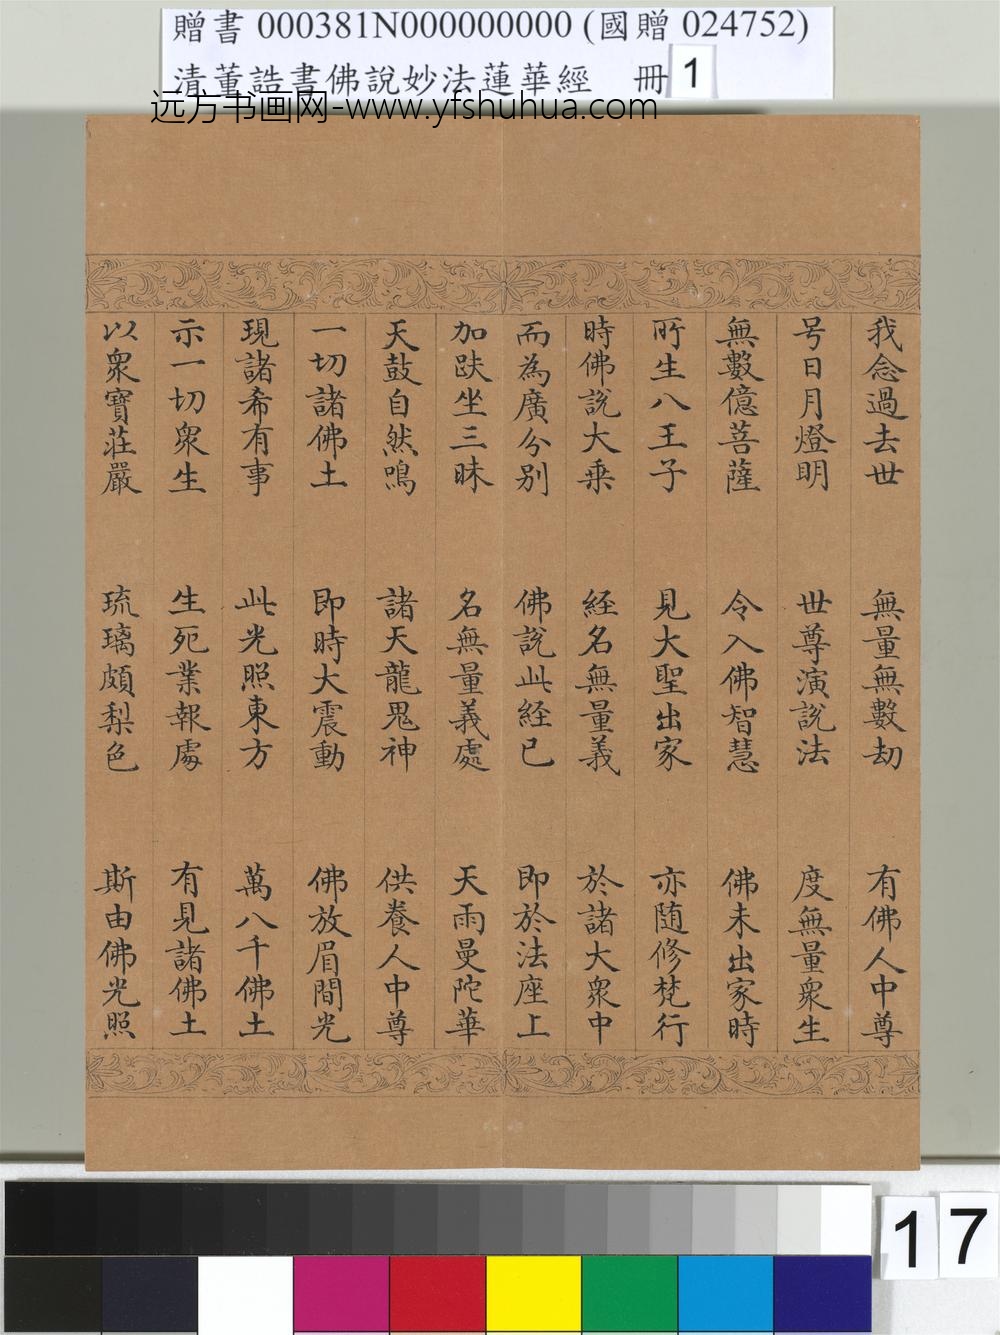 贈書 000381N000000000 (國贈 024752)
清董誥書佛說妙法蓮華經 冊 1
远方书画网-www.yfshuhua.com
我念過去世 無量無數劫 有佛人中尊
号日月燈明 世尊演說法 度無量衆生
無數億菩薩 令入佛智慧 佛未出家時
所生八王子 見大聖出家 亦随修梵行
時佛說大乗 経名無量義 於諸大衆中
而為廣分别 佛說此経已 即於法座上
加趺坐三昧 名無量義處 天雨曼陀華
天鼓自然鳴 諸天龍鬼神 供養人中尊
一切諸佛土 即時大震動 佛放眉間光
現諸希有事 此光照東方 萬八千佛土
示一切衆生 生死業報處 有見諸佛土
以衆寶莊嚴 琉璃頗梨色 斯由佛光照
17